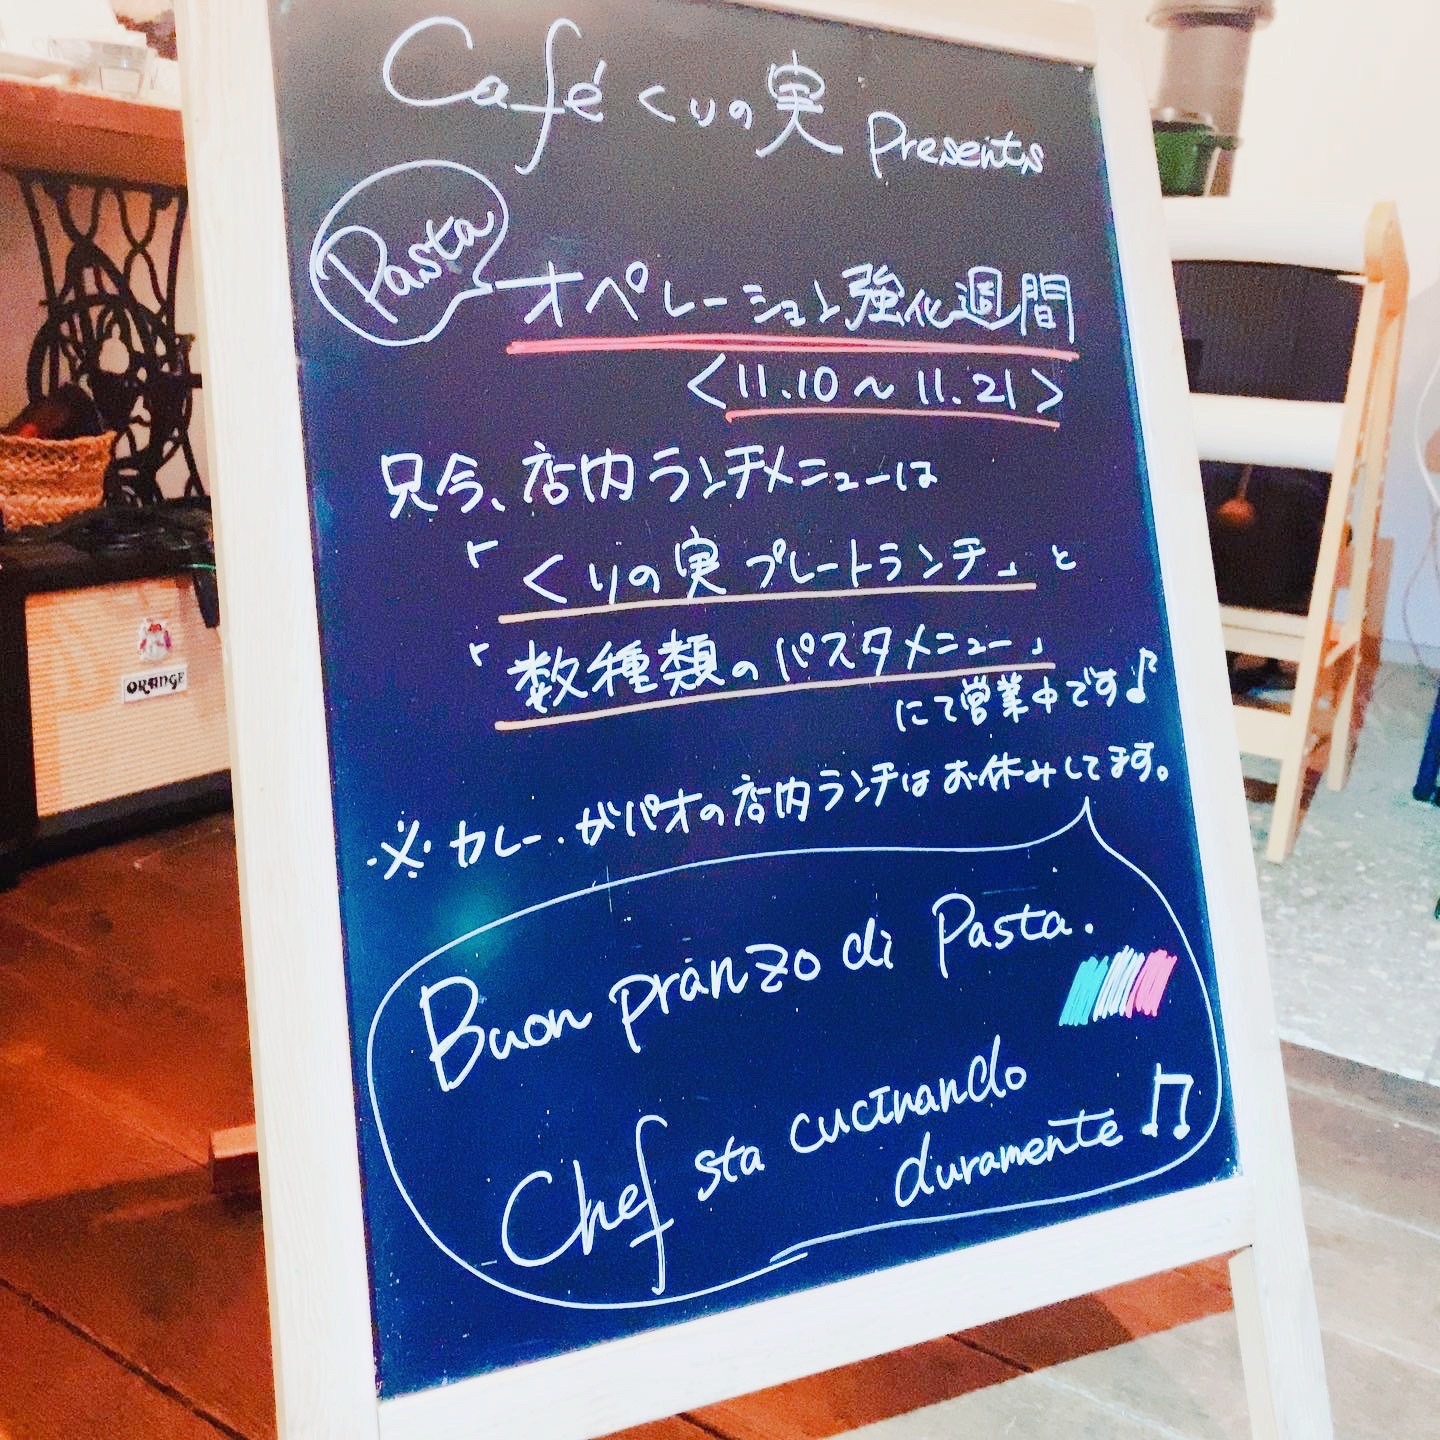 Café くりの実 presents
Pasta
オペレーション強化週間
<11.10～11.21>
只今、店内ランチメニューは
「くりの実プレートランチ」と
「数種類のパスタメニュー」
にて営業中です♪
※カレー・ガパオの店内ランチはお休みしてます。
Buon pranzo di Pasta.
Chef sta cucinando
duramente ♫
ORANGE